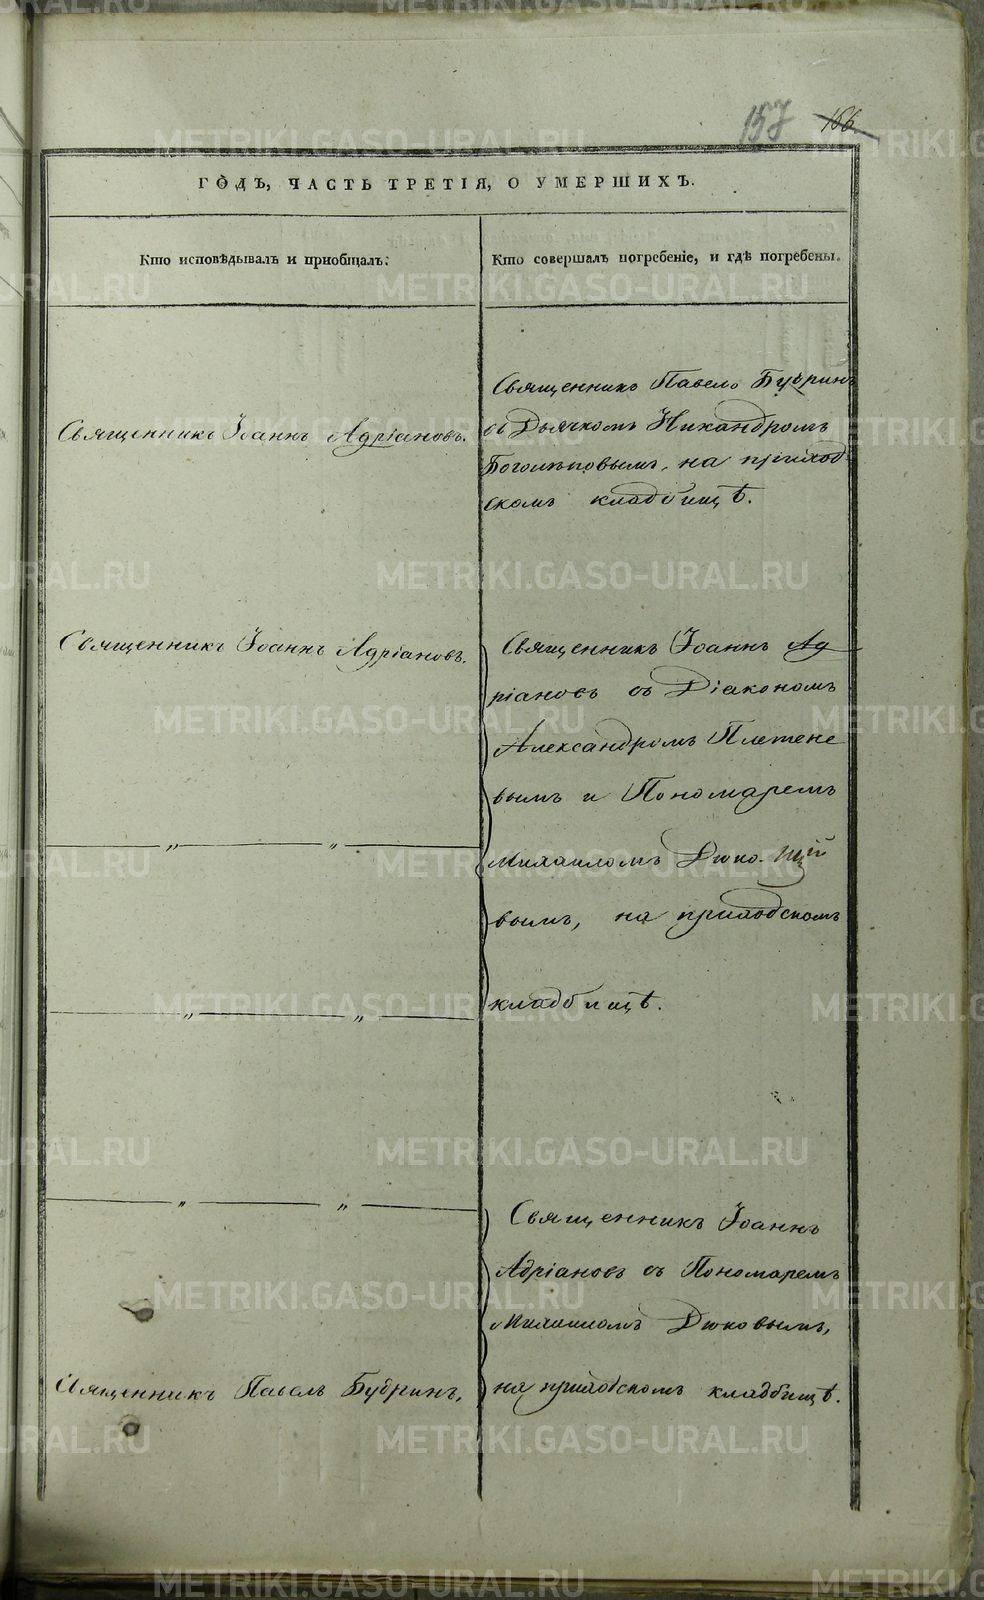 157 186
ГОДЪ, ЧАСТЬ ТРЕТІЯ, О УМЕРШИХЪ.
Кто исповѣдывалъ и приобщалъ:
Кто совершалъ погребеніе, и гдѣ погребены.
Священникъ Іоаннъ Адріановъ.
Священникъ Павелъ Будринъ
съ Дьячкомъ Никандромъ
Боголѣповымъ, на приход-
скомъ кладбищѣ.
Священникъ Іоаннъ Адріановъ.
Священникъ Іоаннъ Ад
ріановъ съ Діакономъ
Александромъ Плетене
вымъ и Пономаремъ
Михаиломъ Дюко-
вымъ, на приходскомъ
кладбищѣ.
Священникъ Іоаннъ
Адріановъ съ Пономаремъ
Михаиломъ Дюковымъ,
на приходскомъ кладбищѣ.
Священникъ Павелъ Будринъ,
METRIKI.GASO-URAL.RU